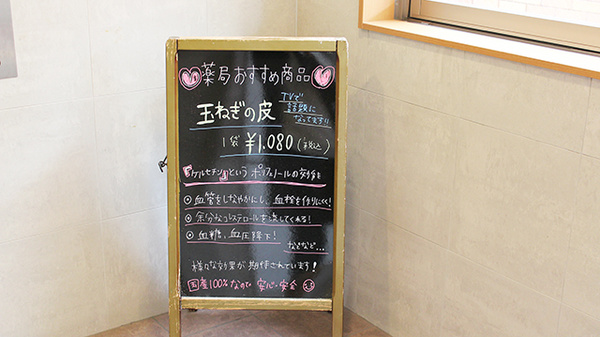 薬局おすすめ商品
玉ねぎの皮
TVで
話題に
なってます!!
1袋 ¥1,080(税込)
『ケルセチン』というポリフェノールの効果で
◎ 血管をしなやかにし、血栓を作りにくく!
◎ 余分なコレステロールを流してくれる!
◎ 血糖、血圧降下!
などなど…
様々な効果が期待されています!
国産100%なので 安心・安全